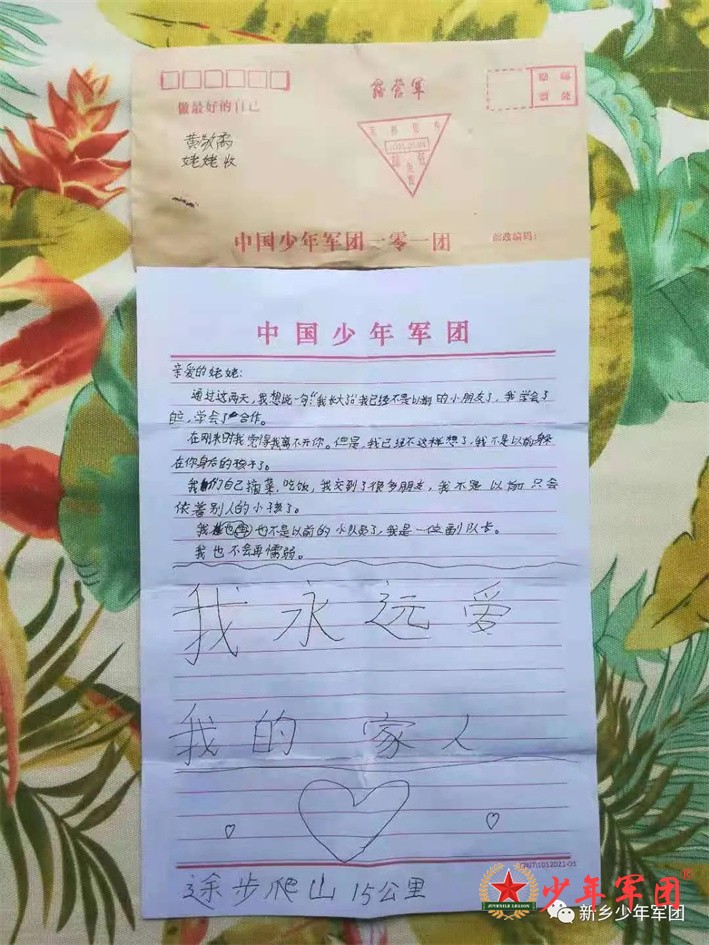 露营军
邮票
做最好的自己
姥姥收
中国少年军团一零一团
邮政编码：
中国少年军团
亲爱的姥姥：
通过这两天，我想说一句“我长大了”我已经不是以前的小朋友了，我学会了
自立，学会了合作。
在刚来时我觉得我离不开你。但是，我已经不这样想了，我不是以前躲
在你身后的孩子了。
我们自己摘菜，吃饭，我交到了很多朋友，我不是以前只会
依着别人的小孩了。
我也不是以前的小队员了，我是一位副队长。
我也不会再懦弱。
我永远爱
我的家人
途步爬山15公里
少年军团
JUVENILE LEGION
新乡少年军团